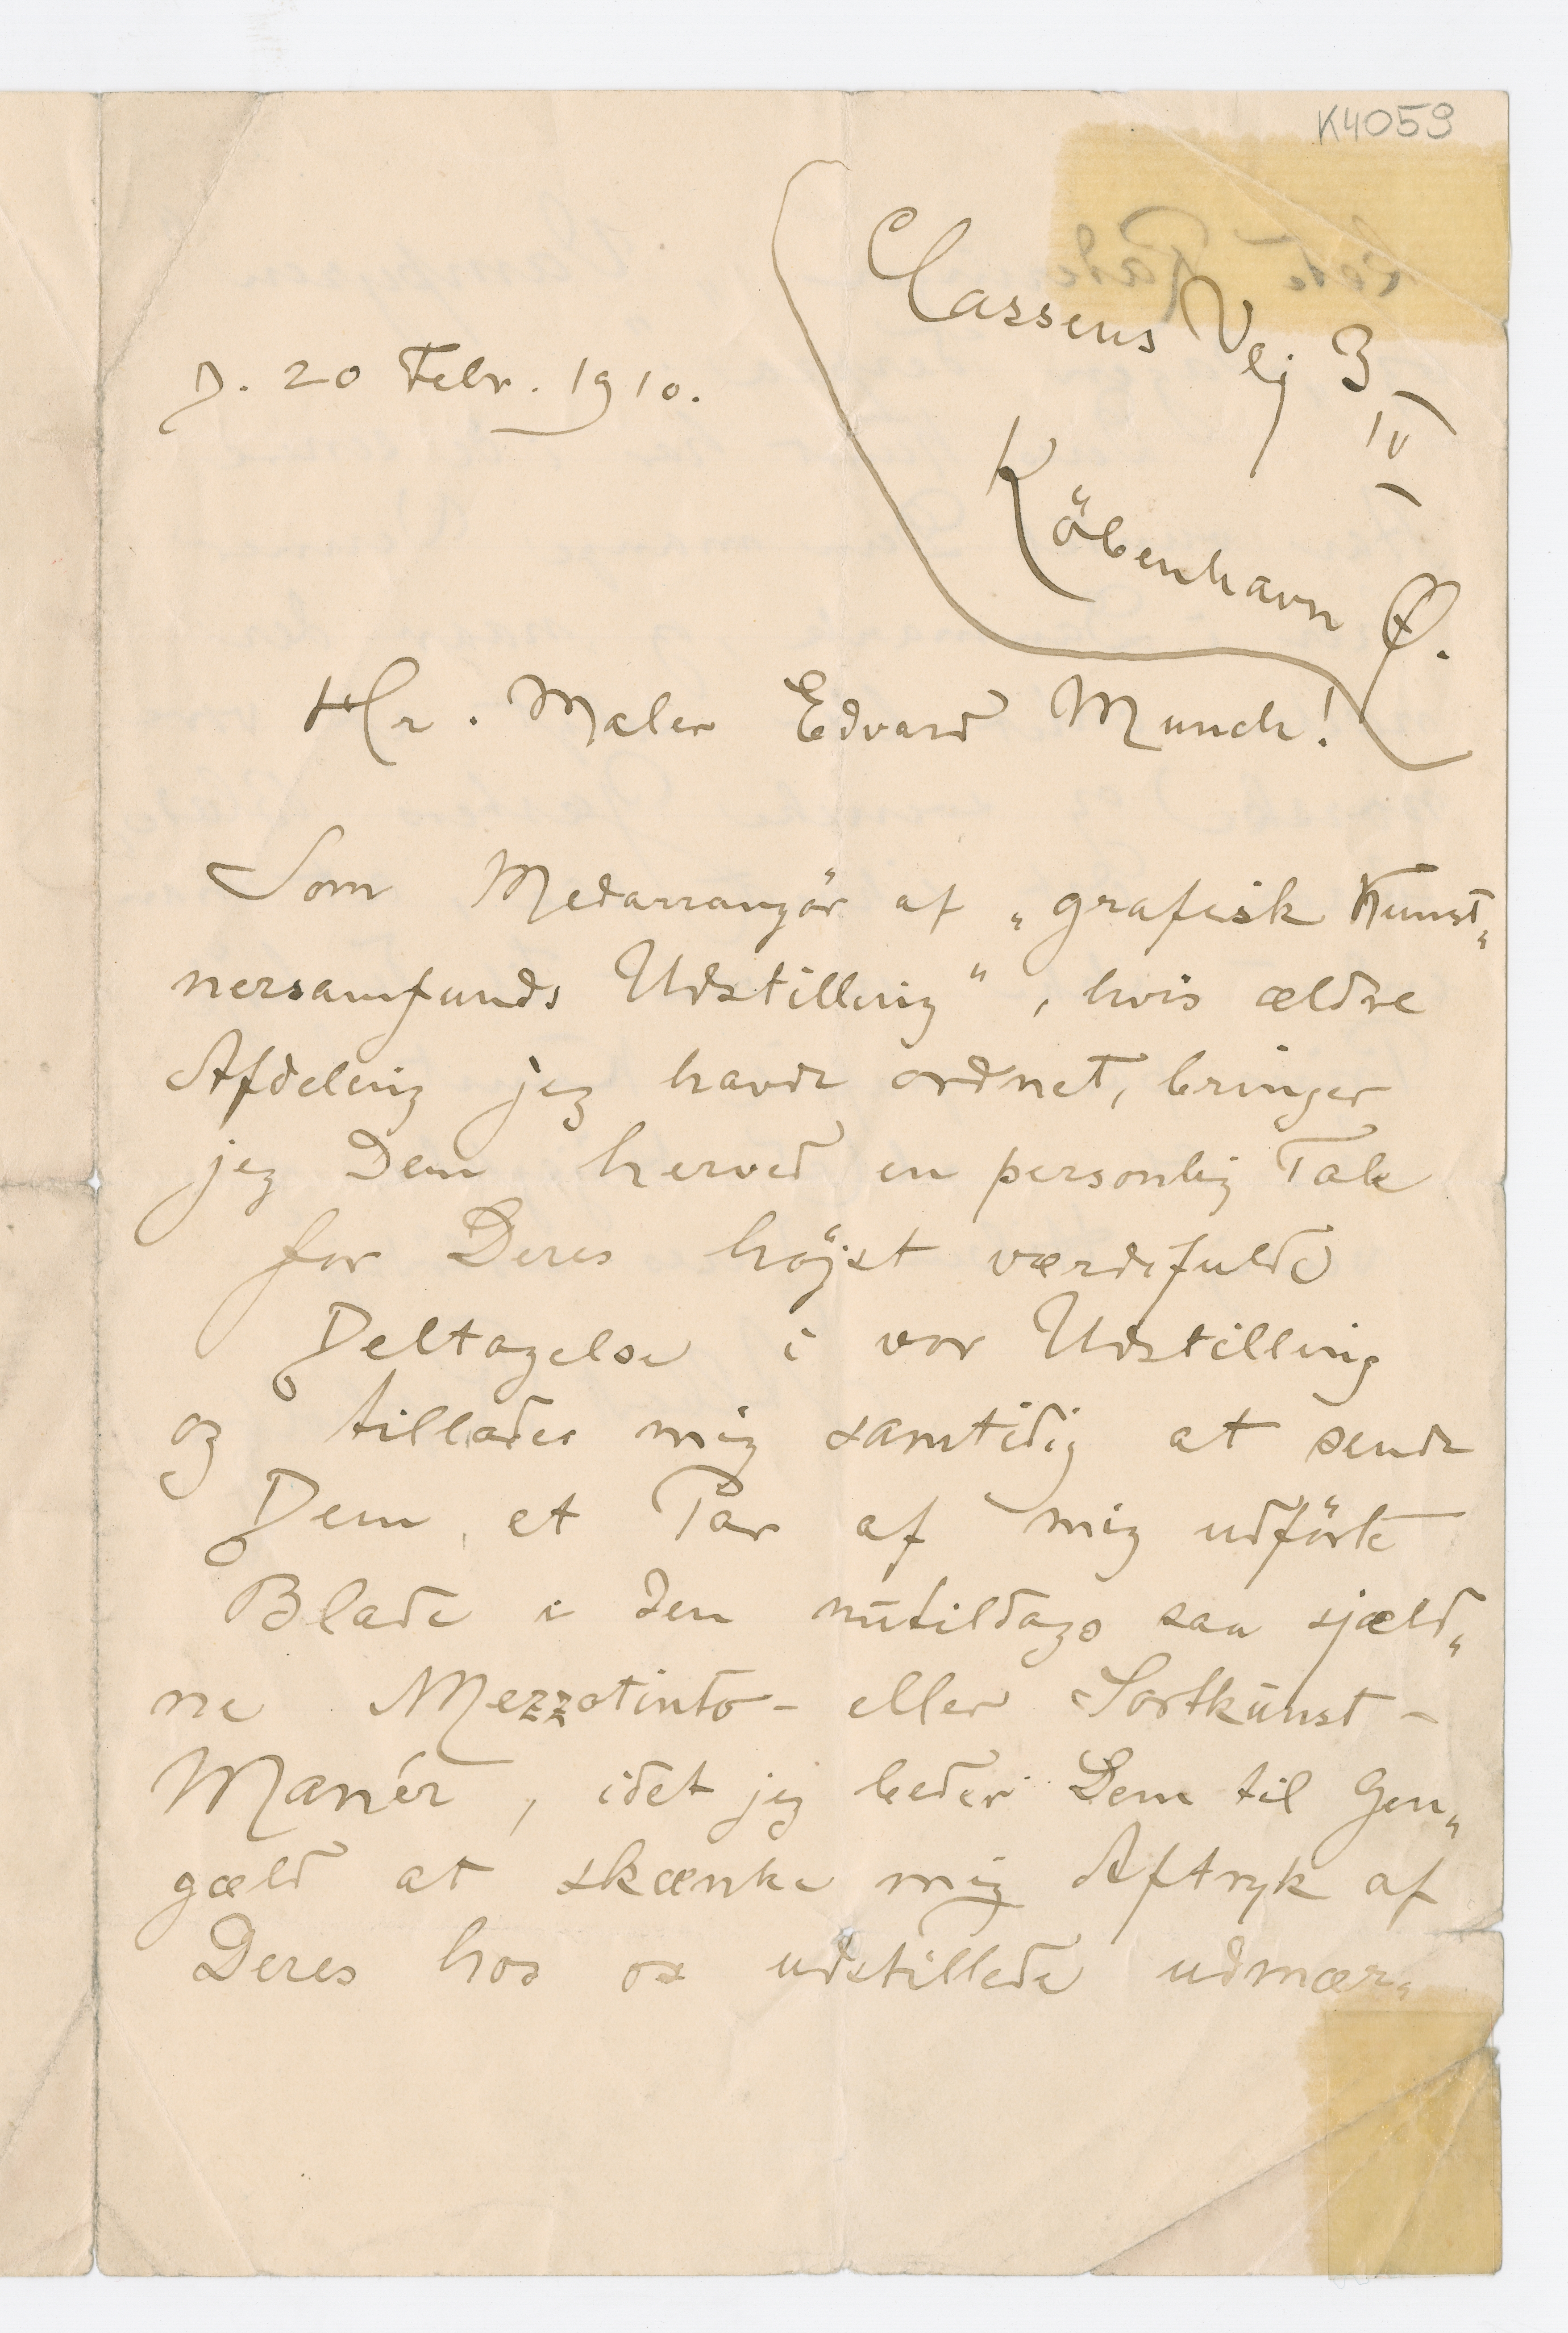 K4059
Classens Vej 3
IV
Köbenhavn Ø.
D. 20 Febr. 1910.
Hr. Maler Edvard Munch!
Som Medarrangör af „grafisk Kunst„
nersamfunds Udstilling“, hvis ældre
Afdeling jeg havde ordnet, bringer
jeg Dem herved en personlig Tak
for Deres höjst værdifulde
Deltagelse i vor Udstilling
og tillader mig samtidig at sende
Dem et Par af mig udförte
Blade i den nutildags saa sjæld„
ne Mezzotinto- eller Sortkunst-
Manér, idet jeg beder Dem til Gen„
gæld at skænke mig Aftryk af
Deres hos os udstillede udmær„